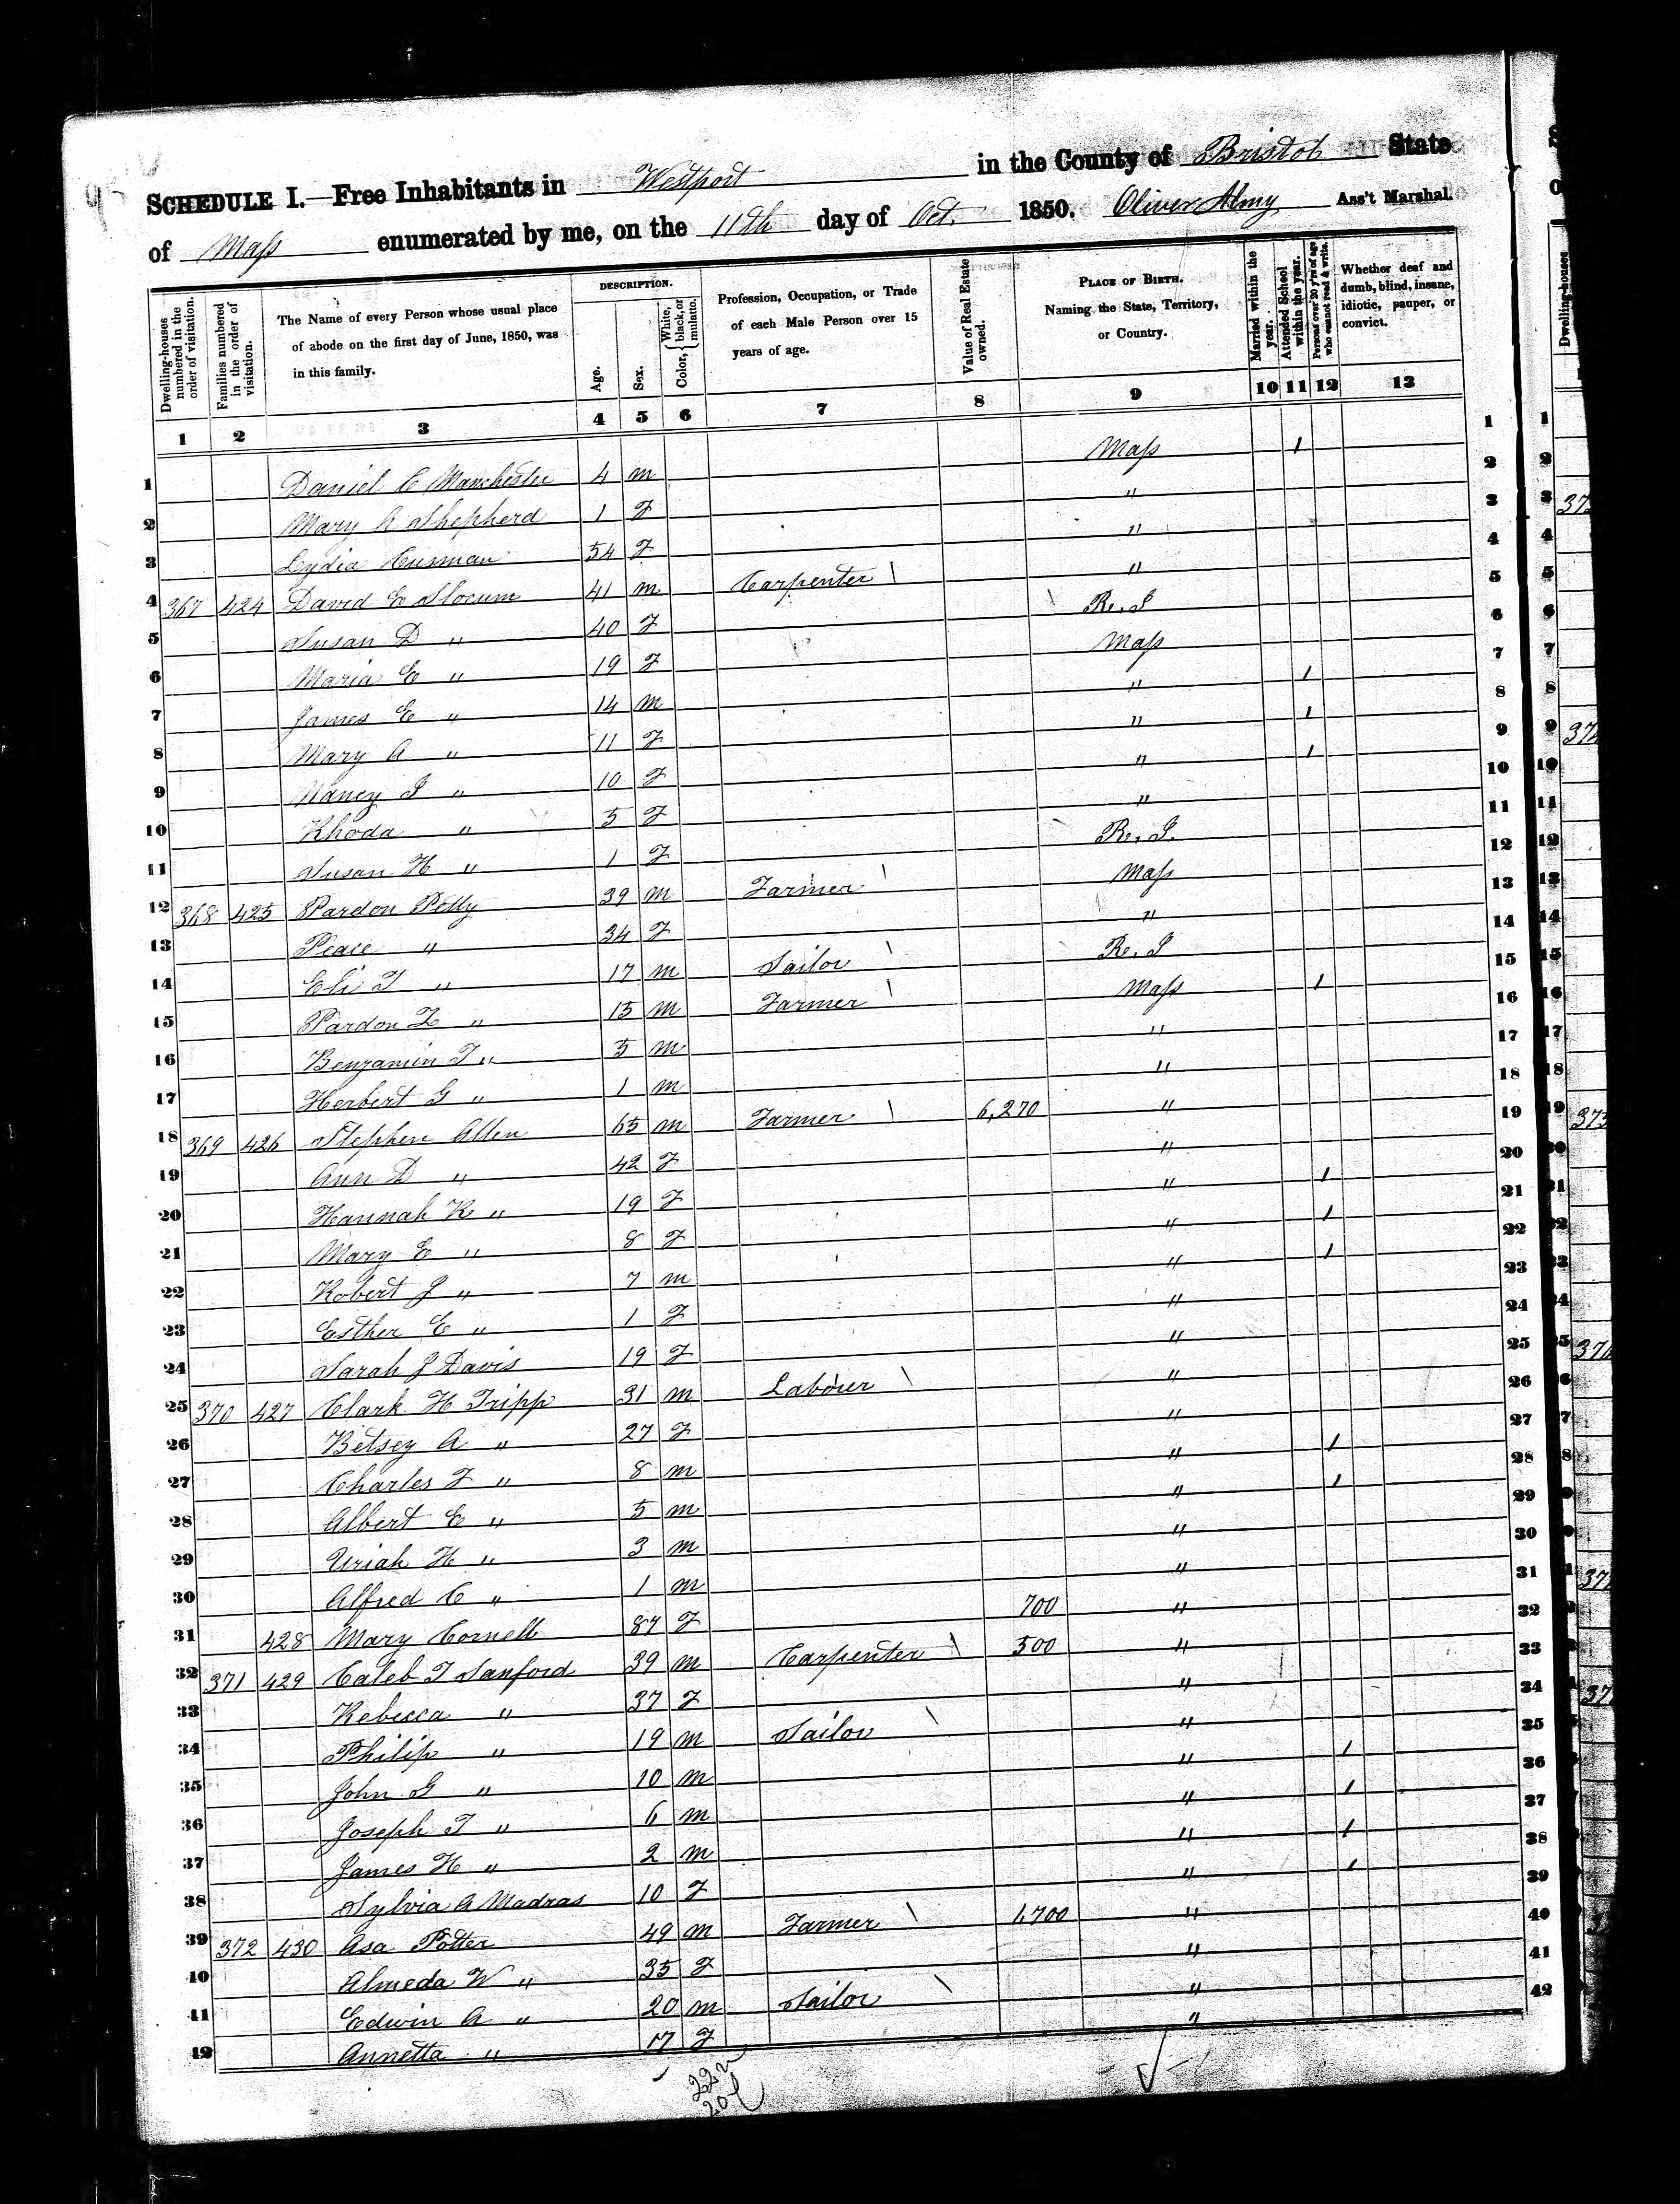 SCHEDULE I.—Free Inhabitants in Westport in the County of Bristol State
of Mass enumerated by me, on the 11th day of Oct. 1850. Oliver Almy Ass't Marshal.
Dwelling-houses numbered in the order of visitation.
Families numbered in the order of visitation.
The Name of every Person whose usual place of abode on the first day of June, 1850, was in this family.
DESCRIPTION.
Age.
Sex.
Color, { White, black, or mulatto.
Profession, Occupation, or Trade of each Male Person over 15 years of age.
Value of Real Estate owned.
PLACE OF BIRTH. Naming the State, Territory, or Country.
Married within the year.
Attended School within the year.
Persons over 20 y'rs of age who cannot read & write.
Whether deaf and dumb, blind, insane, idiotic, pauper, or convict.
1 2 3 4 5 6 7 8 9 10 11 12 13
1 Daniel C Manchester 4 m Mass 1 1
2 Mary A Shepherd 1 F " 2
3 Lydia 54 F " 3
4 367 424 David E Slocum 41 m Carpenter \ " 4
5 Susan D " 40 F R. I 5
6 Maria E " 19 F Mass 6
7 James E " 14 m " 1 7
8 Mary A " 11 F " 1 8
9 Nancy J " 10 F " 1 9
10 Rhoda " 5 F " 10
11 Susan H " 1 F R. I. 11
12 368 425 Pardon Petty 39 m Farmer \ Mass 12
13 Peace " 34 F " 13
14 Eli T " 17 m Sailor \ R. I 14
15 Pardon F " 15 m Farmer \ Mass 1 15
16 Benjamin T " 5 m " 16
17 Herbert G " 1 m " 17
18 369 426 Stephen Allen 65 m Farmer \ 6,270 " 18
19 Ann D " 42 F " 19
20 Hannah K " 19 F " 1 20
21 Mary E " 8 F " 1 21
22 Robert J " 7 m " 1 22
23 Esther E " 1 F " 23
24 Sarah J Davis 19 F " 24
25 370 427 Clark H Tripp 31 m Labourer \ " 25
26 Betsey A " 27 F " 26
27 Charles F " 8 m " 1 27
28 Albert E " 5 m " 1 28
29 Uriah H " 3 m " 29
30 Alfred C " 1 m " 30
31 428 Mary Cornell 87 F 700 " 31
32 371 429 Caleb T Sanford 39 m Carpenter \ 500 " 32
33 Rebecca " 37 F " 33
34 Philip " 19 m Sailor \ " 34
35 John G " 10 m " 1 35
36 Joseph T " 6 m " 1 36
37 James H " 2 m " 1 37
38 Sylvia A Madras 10 F " 1 38
39 372 430 Asa Potter 49 m Farmer \ 1,700 " 39
40 Almeda W " 35 F " 40
41 Edwin A " 20 m Sailor \ " 41
42 Annetta " 17 F " 42
22 m
20 f